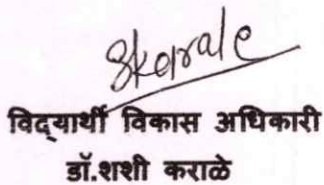 Skarale
विद्यार्थी विकास अधिकारी
डॉ.शशी कराळे